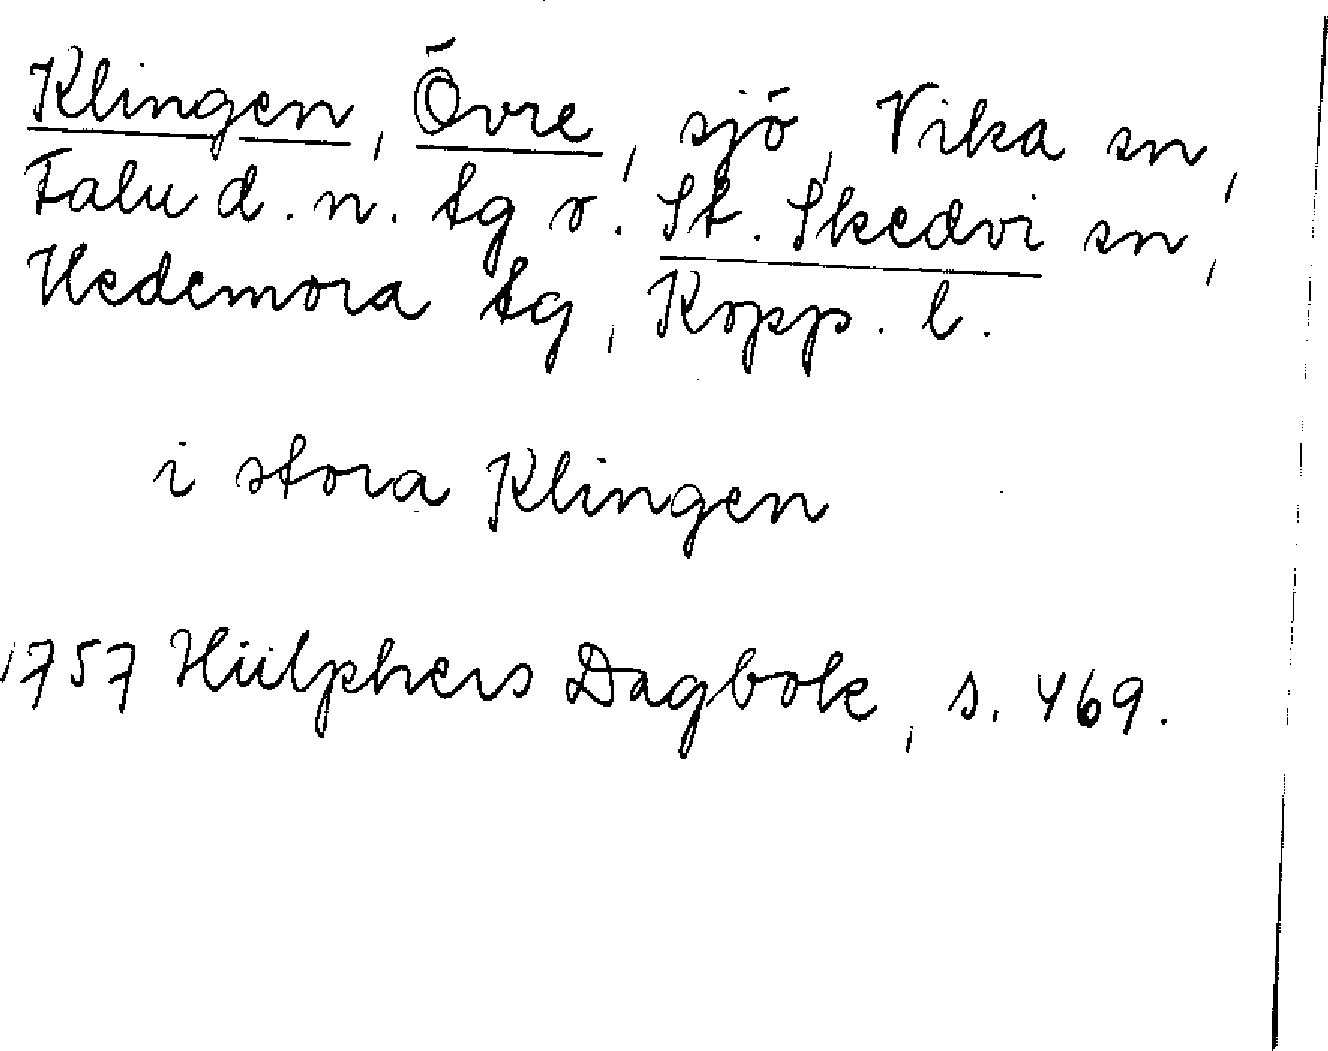 Klingen, Övre, sjö, Vika sn,
Falu d. n. tg o. St. Skedvi sn,
Hedemora tg, Kopp. l.
i stora Klingen
1757 Hülphers Dagbok, s. 469.